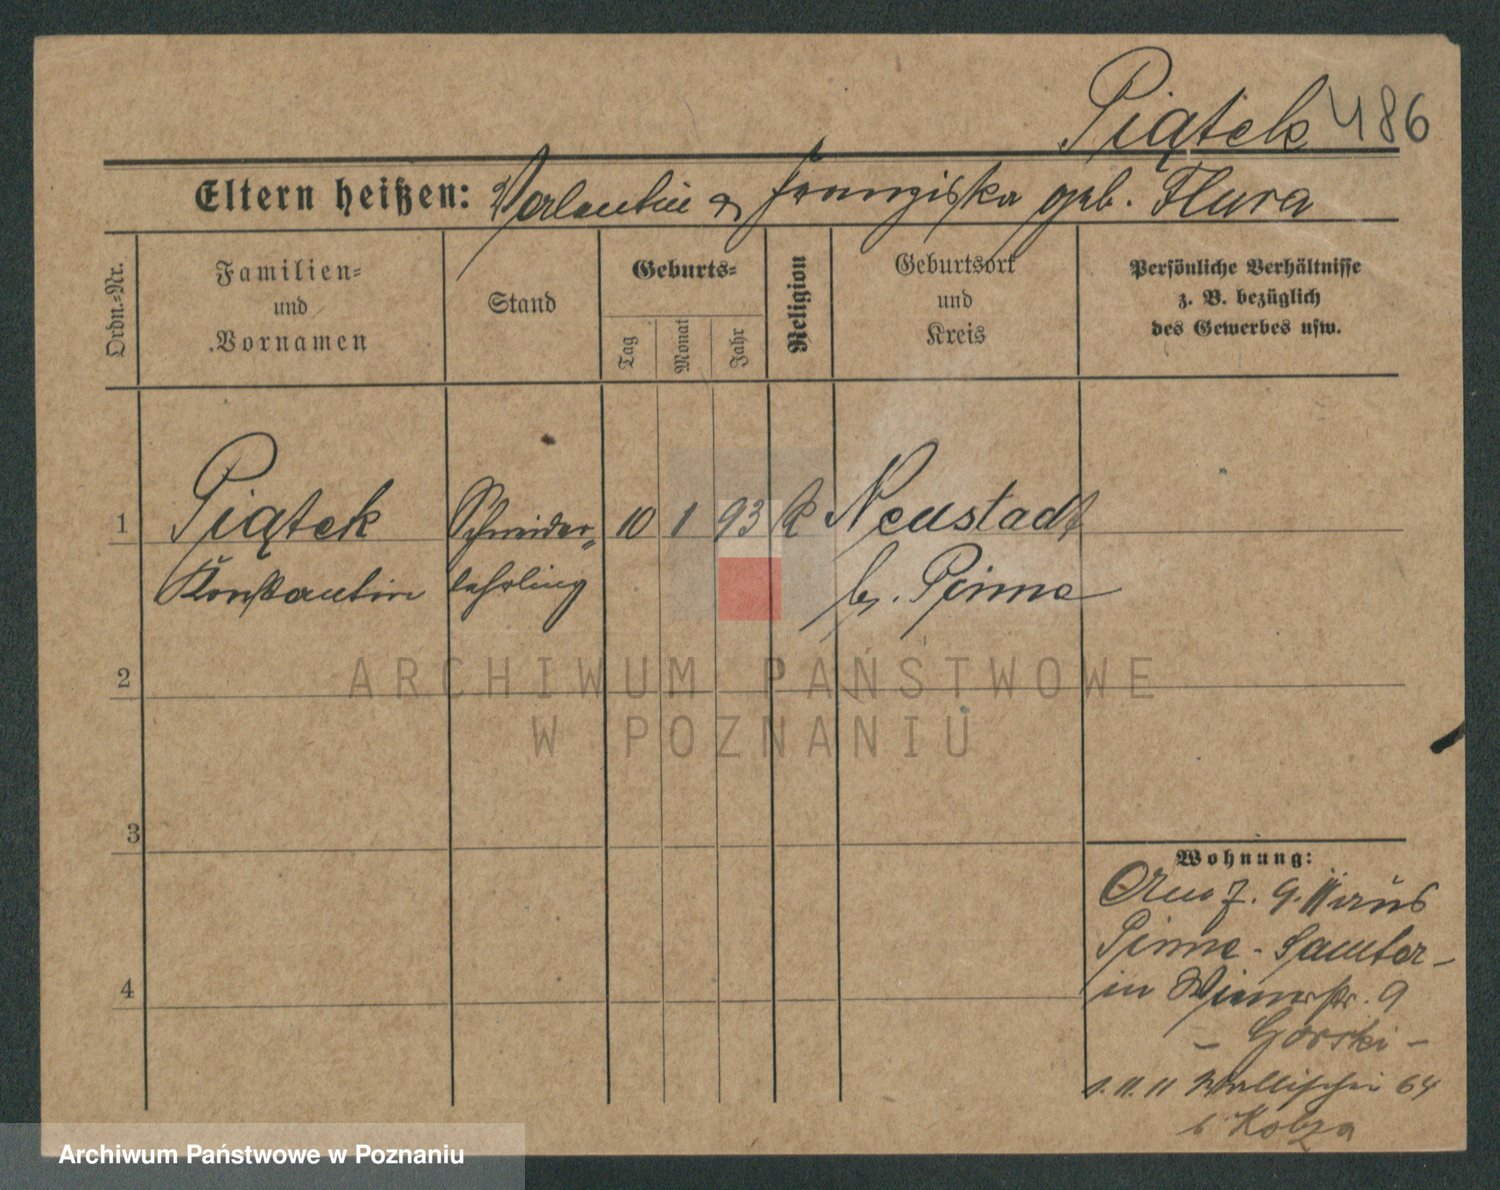 Piątek 486
Eltern heißen: Valentin & Franziska geb. Flura
Ordn.-Nr.
Familien-
und
Vornamen
Stand
Geburts-
Tag
Monat
Jahr
Religion
Geburtsort
und
Kreis
Persönliche Verhältnisse
z. B. bezüglich
des Gewerbes usw.
1 Piątek Schneider- 10 1 93 k Neustadt
Konstantin lehrling b. Pinne
2
ARCHIWUM PAŃSTWOWE
W POZNANIU
3
Wohnung:
7. 9. 11 aus
Pinne - Samter -
4
in Wienerstr. 9
- Górski -
1. 11. 11 Wallischei 64
b. Kolza
Archiwum Państwowe w Poznaniu